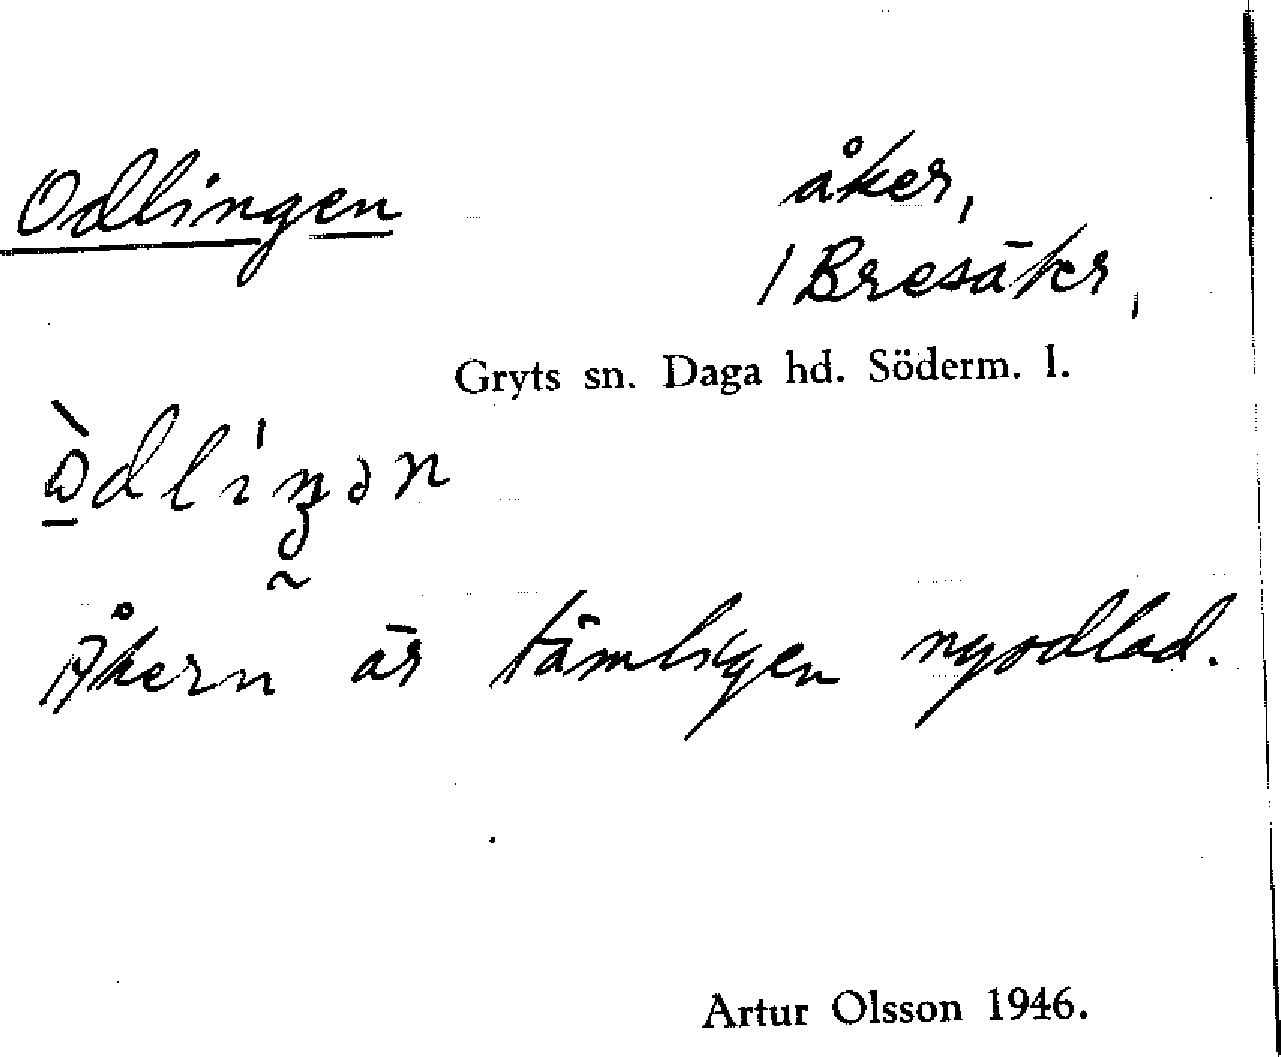 Odlingen åker,
/ Bresäter,
Gryts sn. Daga hd. Söderm. l.
Åkern är tämligen nyodlad.
Artur Olsson 1946.